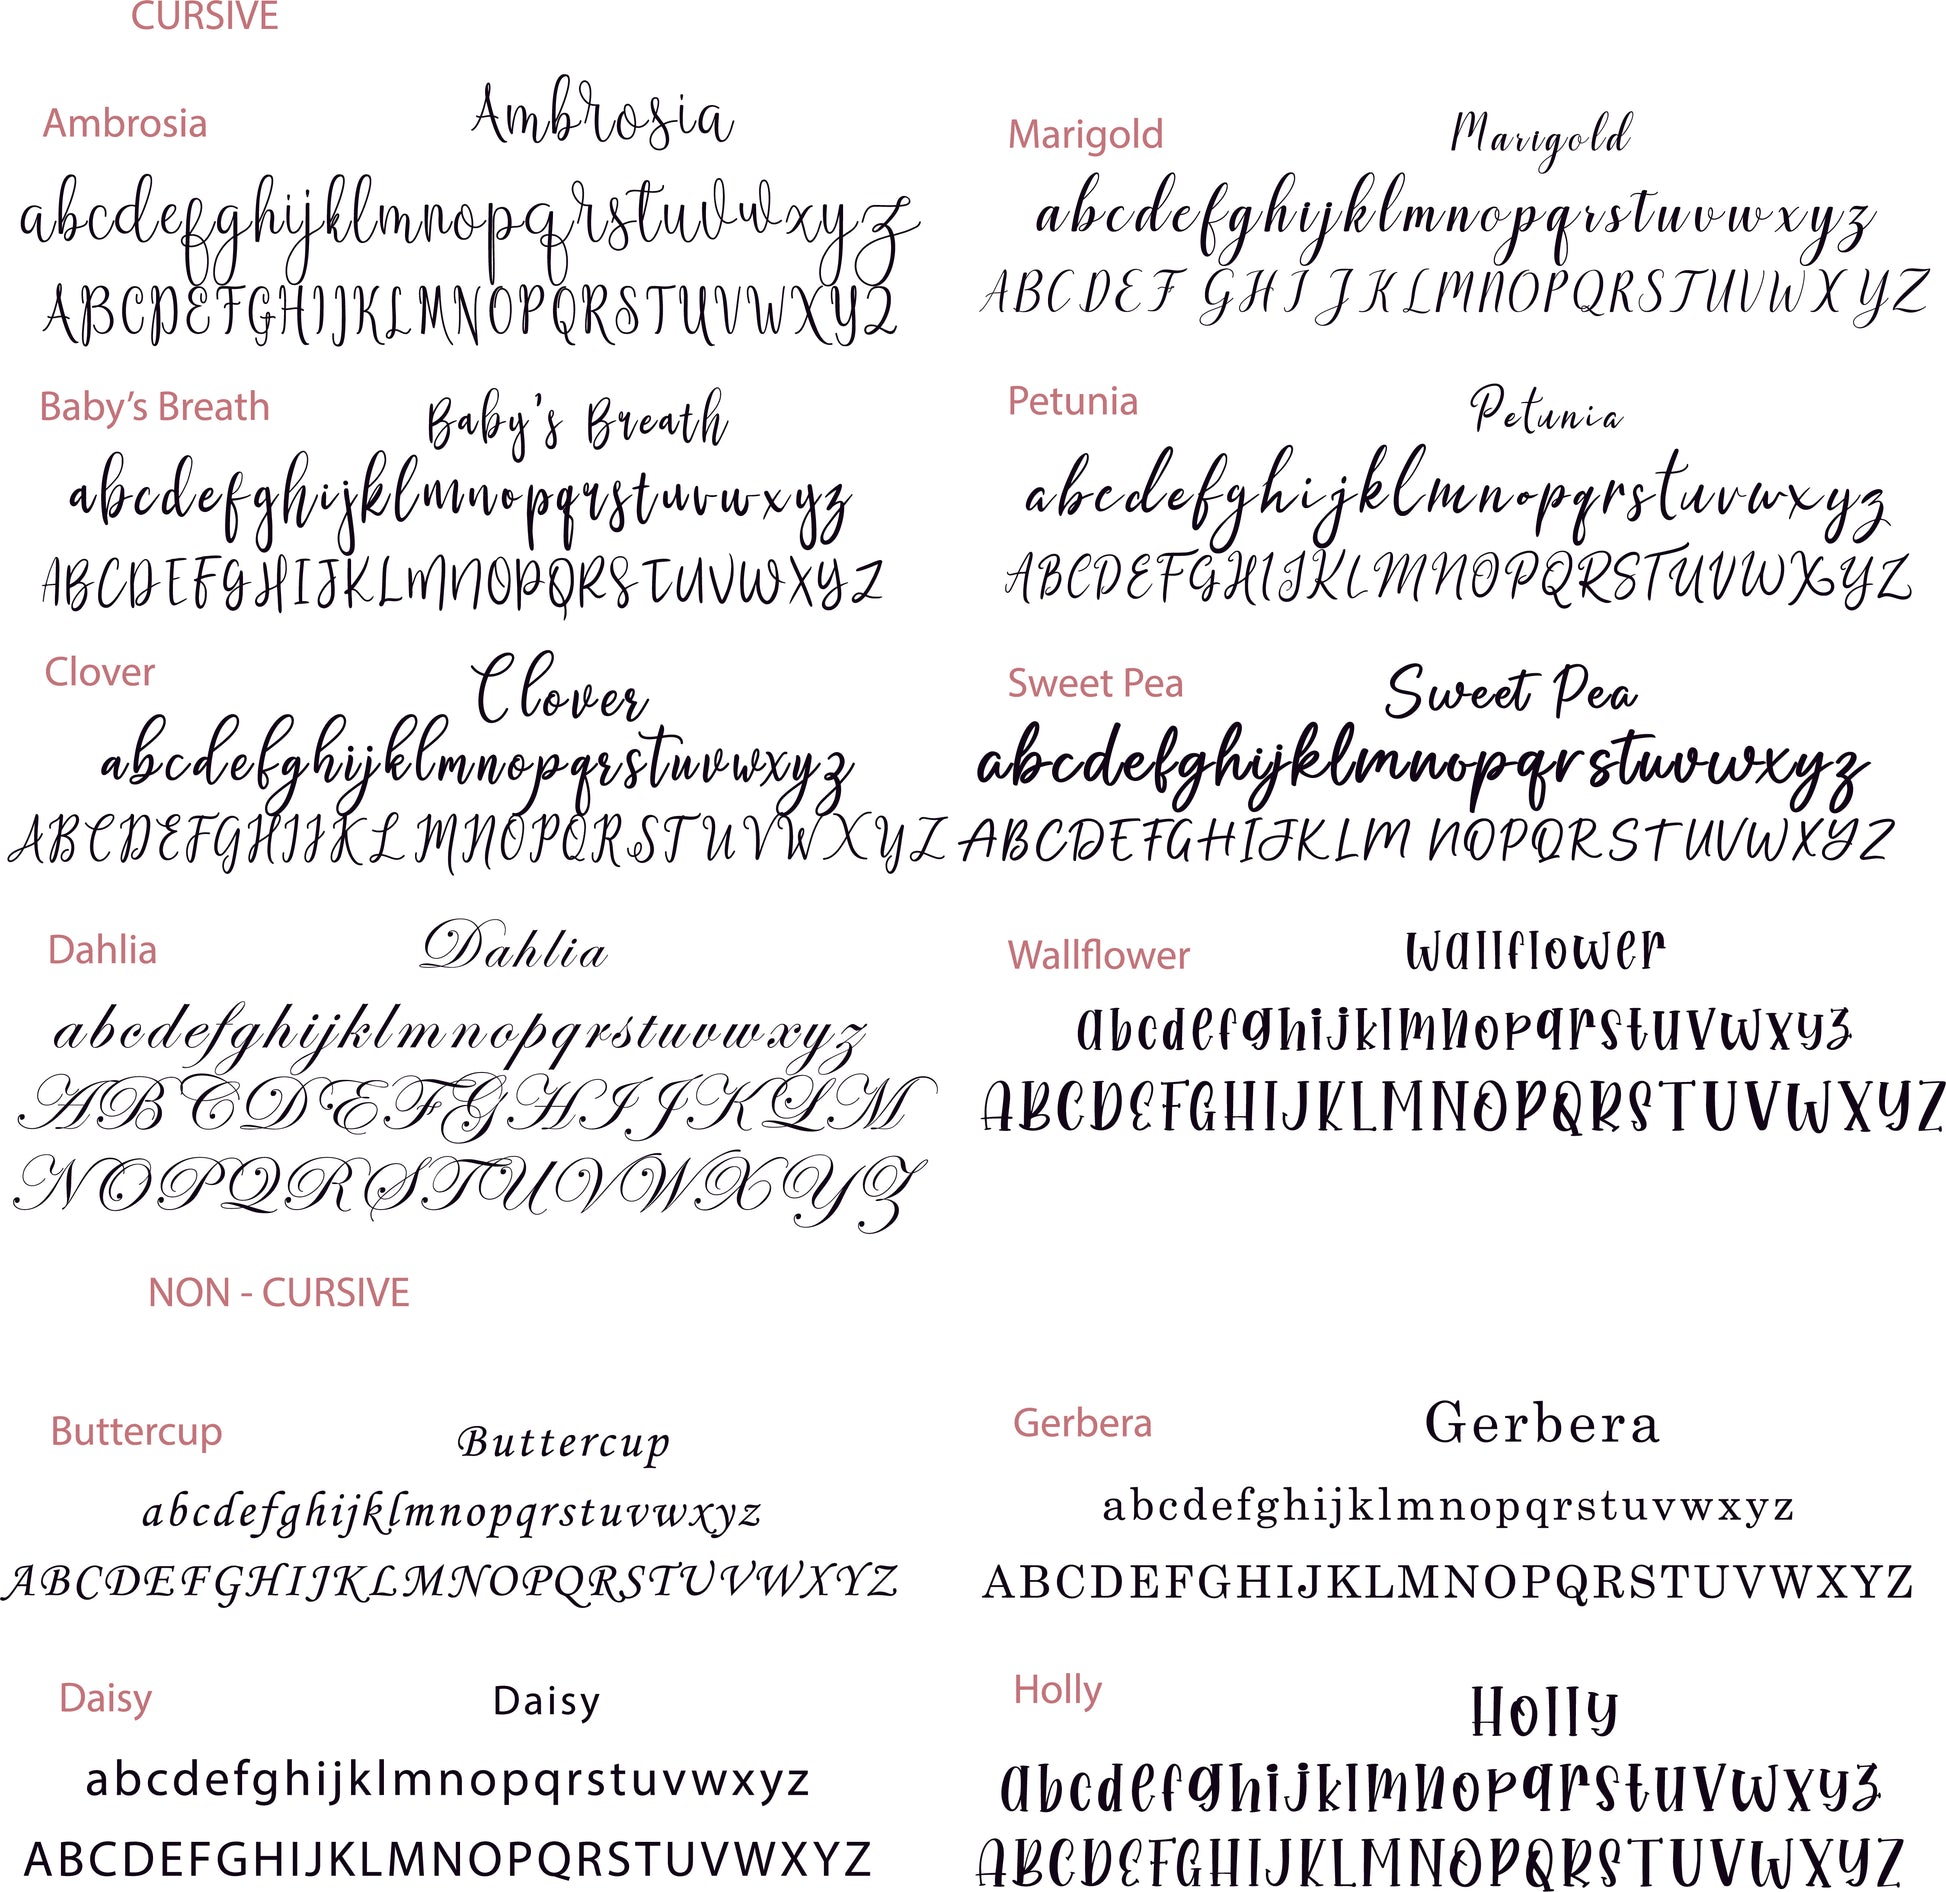 CURSIVE
Ambrosia
Ambrosia
abcdefghijklmnopqrstuvwxyz
ABCDEFGHIJKLMNOPQRSTUVWXYZ
Baby's Breath
Baby's Breath
abcdefghijklmnopqrstuvwxyz
ABCDEFGHIJKLMNOPQRSTUVWXYZ
Clover
Clover
abcdefghijklmnopqrstuvwxyz
ABCDEFGHIJKLMNOPQRSTUVWXYZ
Dahlia
Dahlia
abcdefghijklmnopqrstuvwxyz
ABCDEFGHIJKLM
NOPQRSTUVWXYZ
Marigold
Marigold
abcdefghijklmnopqrstuvwxyz
ABCDEF GHIJKLMNOPQRSTUVWXYZ
Petunia
Petunia
abcdefghijklmnopqrstuvwxyz
ABCDEFGHIJKLMNOPQRSTUVWXYZ
Sweet Pea
Sweet Pea
abcdefghijklmnopqrstuvwxyz
ABCDEFGHIJKLM NOPQRSTUVWXYZ
Wallflower
wallflower
abcdefghijklmnopqrstuvwxyz
ABCDEFGHIJKLMNOPQRSTUVWXYZ
NON - CURSIVE
Buttercup
Buttercup
abcdefghijklmnopqrstuvwxyz
ABCDEFGHIJKLMNOPQRSTUVWXYZ
Daisy
Daisy
abcdefghijklmnopqrstuvwxyz
ABCDEFGHIJKLMNOPQRSTUVWXYZ
Gerbera
Gerbera
abcdefghijklmnopqrstuvwxyz
ABCDEFGHIJKLMNOPQRSTUVWXYZ
Holly
Holly
abcdefghijklmnopqrstuvwxyz
ABCDEFGHIJKLMNOPQRSTUVWXYZ